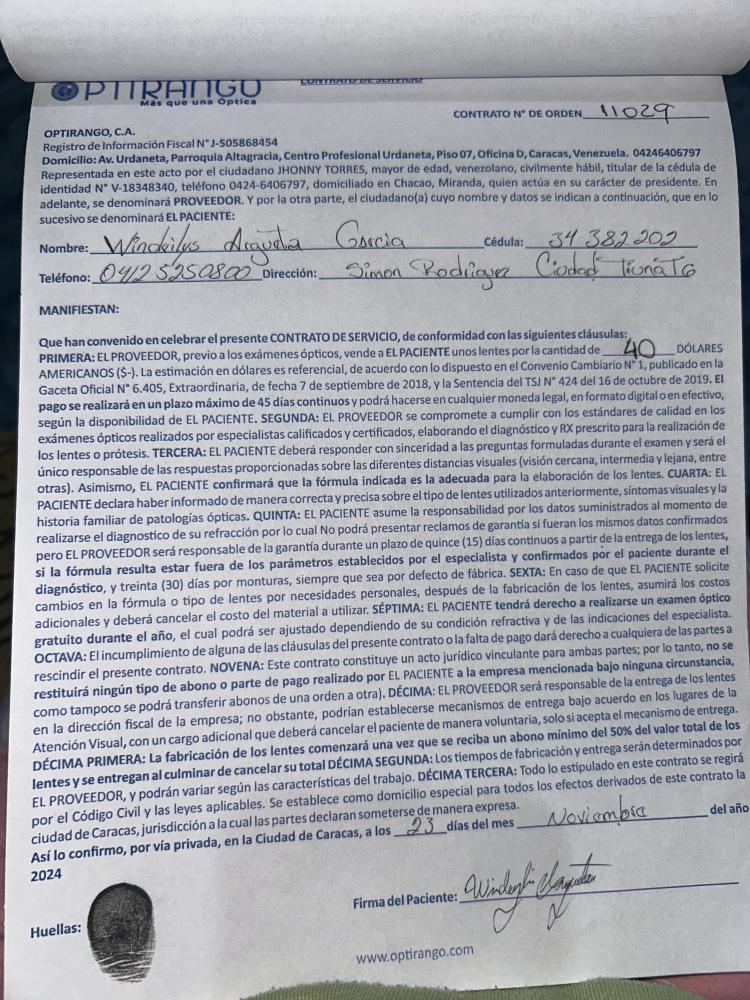 OPTIRANGO
Más que una Óptica
CONTRATO DE SERVICIO
CONTRATO N° DE ORDEN 11029
OPTIRANGO, C.A.
Registro de Información Fiscal N° J-505868454
Domicilio: Av. Urdaneta, Parroquia Altagracia, Centro Profesional Urdaneta, Piso 07, Oficina D, Caracas, Venezuela. 04246406797
Representada en este acto por el ciudadano JHONNY TORRES, mayor de edad, venezolano, civilmente hábil, titular de la cédula de
identidad N° V-18348340, teléfono 0424-6406797, domiciliado en Chacao, Miranda, quien actúa en su carácter de presidente. En
adelante, se denominará PROVEEDOR. Y por la otra parte, el ciudadano(a) cuyo nombre y datos se indican a continuación, que en lo
sucesivo se denominará EL PACIENTE:
Nombre: Windeilys Argueta Garcia Cédula: 34 382 202
Teléfono: 0412 5250800 Dirección: Simon Rodriguez Ciudad Tiuna
MANIFIESTAN:
Que han convenido en celebrar el presente CONTRATO DE SERVICIO, de conformidad con las siguientes cláusulas:
PRIMERA: EL PROVEEDOR, previo a los exámenes ópticos, vende a EL PACIENTE unos lentes por la cantidad de 40 DÓLARES
AMERICANOS ($-). La estimación en dólares es referencial, de acuerdo con lo dispuesto en el Convenio Cambiario N° 1, publicado en la
Gaceta Oficial N° 6.405, Extraordinaria, de fecha 7 de septiembre de 2018, y la Sentencia del TSJ N° 424 del 16 de octubre de 2019. El
pago se realizará en un plazo máximo de 45 días continuos y podrá hacerse en cualquier moneda legal, en formato digital o en efectivo,
según la disponibilidad de EL PACIENTE. SEGUNDA: EL PROVEEDOR se compromete a cumplir con los estándares de calidad en los
exámenes ópticos realizados por especialistas calificados y certificados, elaborando el diagnóstico y RX prescrito para la realización de
los lentes o prótesis. TERCERA: EL PACIENTE deberá responder con sinceridad a las preguntas formuladas durante el examen y será el
único responsable de las respuestas proporcionadas sobre las diferentes distancias visuales (visión cercana, intermedia y lejana, entre
otras). Asimismo, EL PACIENTE confirmará que la fórmula indicada es la adecuada para la elaboración de los lentes. CUARTA: EL
PACIENTE declara haber informado de manera correcta y precisa sobre el tipo de lentes utilizados anteriormente, síntomas visuales y la
historia familiar de patologías ópticas. QUINTA: EL PACIENTE asume la responsabilidad por los datos suministrados al momento de
realizarse el diagnostico de su refracción por lo cual No podrá presentar reclamos de garantía si fueran los mismos datos confirmados
pero EL PROVEEDOR será responsable de la garantía durante un plazo de quince (15) días continuos a partir de la entrega de los lentes,
si la fórmula resulta estar fuera de los parámetros establecidos por el especialista y confirmados por el paciente durante el
diagnóstico, y treinta (30) días por monturas, siempre que sea por defecto de fábrica. SEXTA: En caso de que EL PACIENTE solicite
cambios en la fórmula o tipo de lentes por necesidades personales, después de la fabricación de los lentes, asumirá los costos
adicionales y deberá cancelar el costo del material a utilizar. SÉPTIMA: EL PACIENTE tendrá derecho a realizarse un examen óptico
gratuito durante el año, el cual podrá ser ajustado dependiendo de su condición refractiva y de las indicaciones del especialista.
OCTAVA: El incumplimiento de alguna de las cláusulas del presente contrato o la falta de pago dará derecho a cualquiera de las partes a
rescindir el presente contrato. NOVENA: Este contrato constituye un acto jurídico vinculante para ambas partes; por lo tanto, no se
restituirá ningún tipo de abono o parte de pago realizado por EL PACIENTE a la empresa mencionada bajo ninguna circunstancia,
como tampoco se podrá transferir abonos de una orden a otra). DÉCIMA: EL PROVEEDOR será responsable de la entrega de los lentes
en la dirección fiscal de la empresa; no obstante, podrían establecerse mecanismos de entrega bajo acuerdo en los lugares de la
Atención Visual, con un cargo adicional que deberá cancelar el paciente de manera voluntaria, solo si acepta el mecanismo de entrega.
DÉCIMA PRIMERA: La fabricación de los lentes comenzará una vez que se reciba un abono mínimo del 50% del valor total de los
lentes y se entregan al culminar de cancelar su total DÉCIMA SEGUNDA: Los tiempos de fabricación y entrega serán determinados por
EL PROVEEDOR, y podrán variar según las características del trabajo. DÉCIMA TERCERA: Todo lo estipulado en este contrato se regirá
por el Código Civil y las leyes aplicables. Se establece como domicilio especial para todos los efectos derivados de este contrato la
ciudad de Caracas, jurisdicción a la cual las partes declaran someterse de manera expresa.
Así lo confirmo, por vía privada, en la Ciudad de Caracas, a los 23 días del mes Noviembre del año
2024
Firma del Paciente:
Huellas:
www.optirango.com